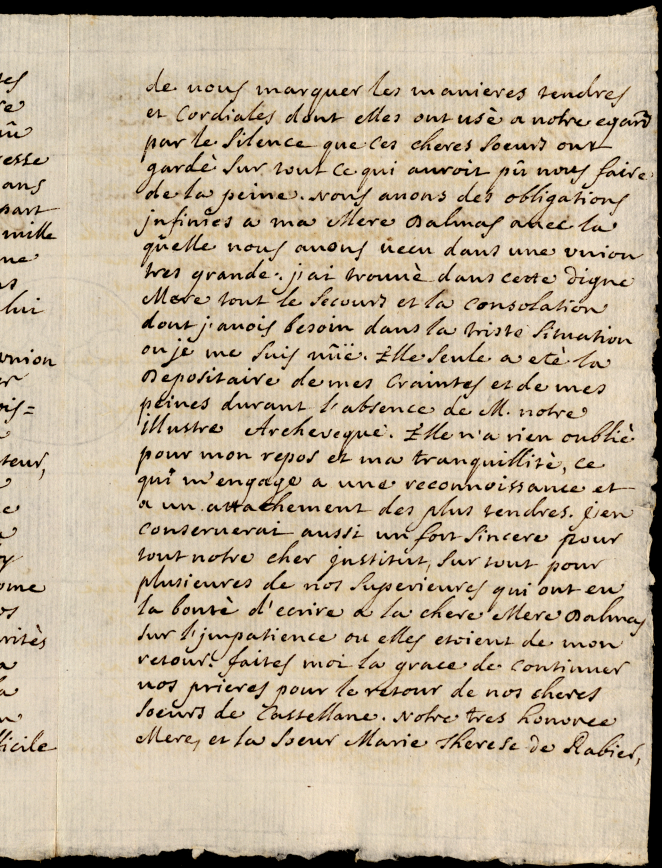 de nous marquer les manieres tendres
et Cordiales dont elles ont usè a notre egard
par le Silence que ces cheres Soeurs ont
gardè Sur tout ce qui auroit pû nous faire
de la peine. Nous auons des obligations
jnfinies a ma Mere Dalmas auec la
quelle nous auons uecu dans une vnion
tres grande. j'ai trouuè dans cette digne
Mere tout le Secours et la Consolation
dont j'auois besoin dans la triste Situation
ou je me Suis vüe. Elle Seule a etè la
Depositaire de mes Craintes et de mes
peines durant l'absence de M. notre
illustre Archeveque. Elle n'a rien oubliè
pour mon repos et ma tranquillitè, ce
qui m'engage a une reconnoissance et
a un attachement des plus tendres. j'en
conseruerai aussi un fort Sincere pour
tout notre cher jnstitut, Sur tout pour
plusieures de nos Superieures qui ont eu
la bontè d'ecrire a la chere Mere Dalmas
Sur l'jmpatience ou elles etoient de mon
retour. faites moi la grace de Continuer
vos prieres pour le retour de nos cheres
Soeurs de Castellane. Notre tres honoree
Mere, et la Soeur Marie Therese de Rabier,
tes
re
esse
ans
part
mille
ne
lui
vnion
ois=
teur,
ome
os
ritès
la
ficile